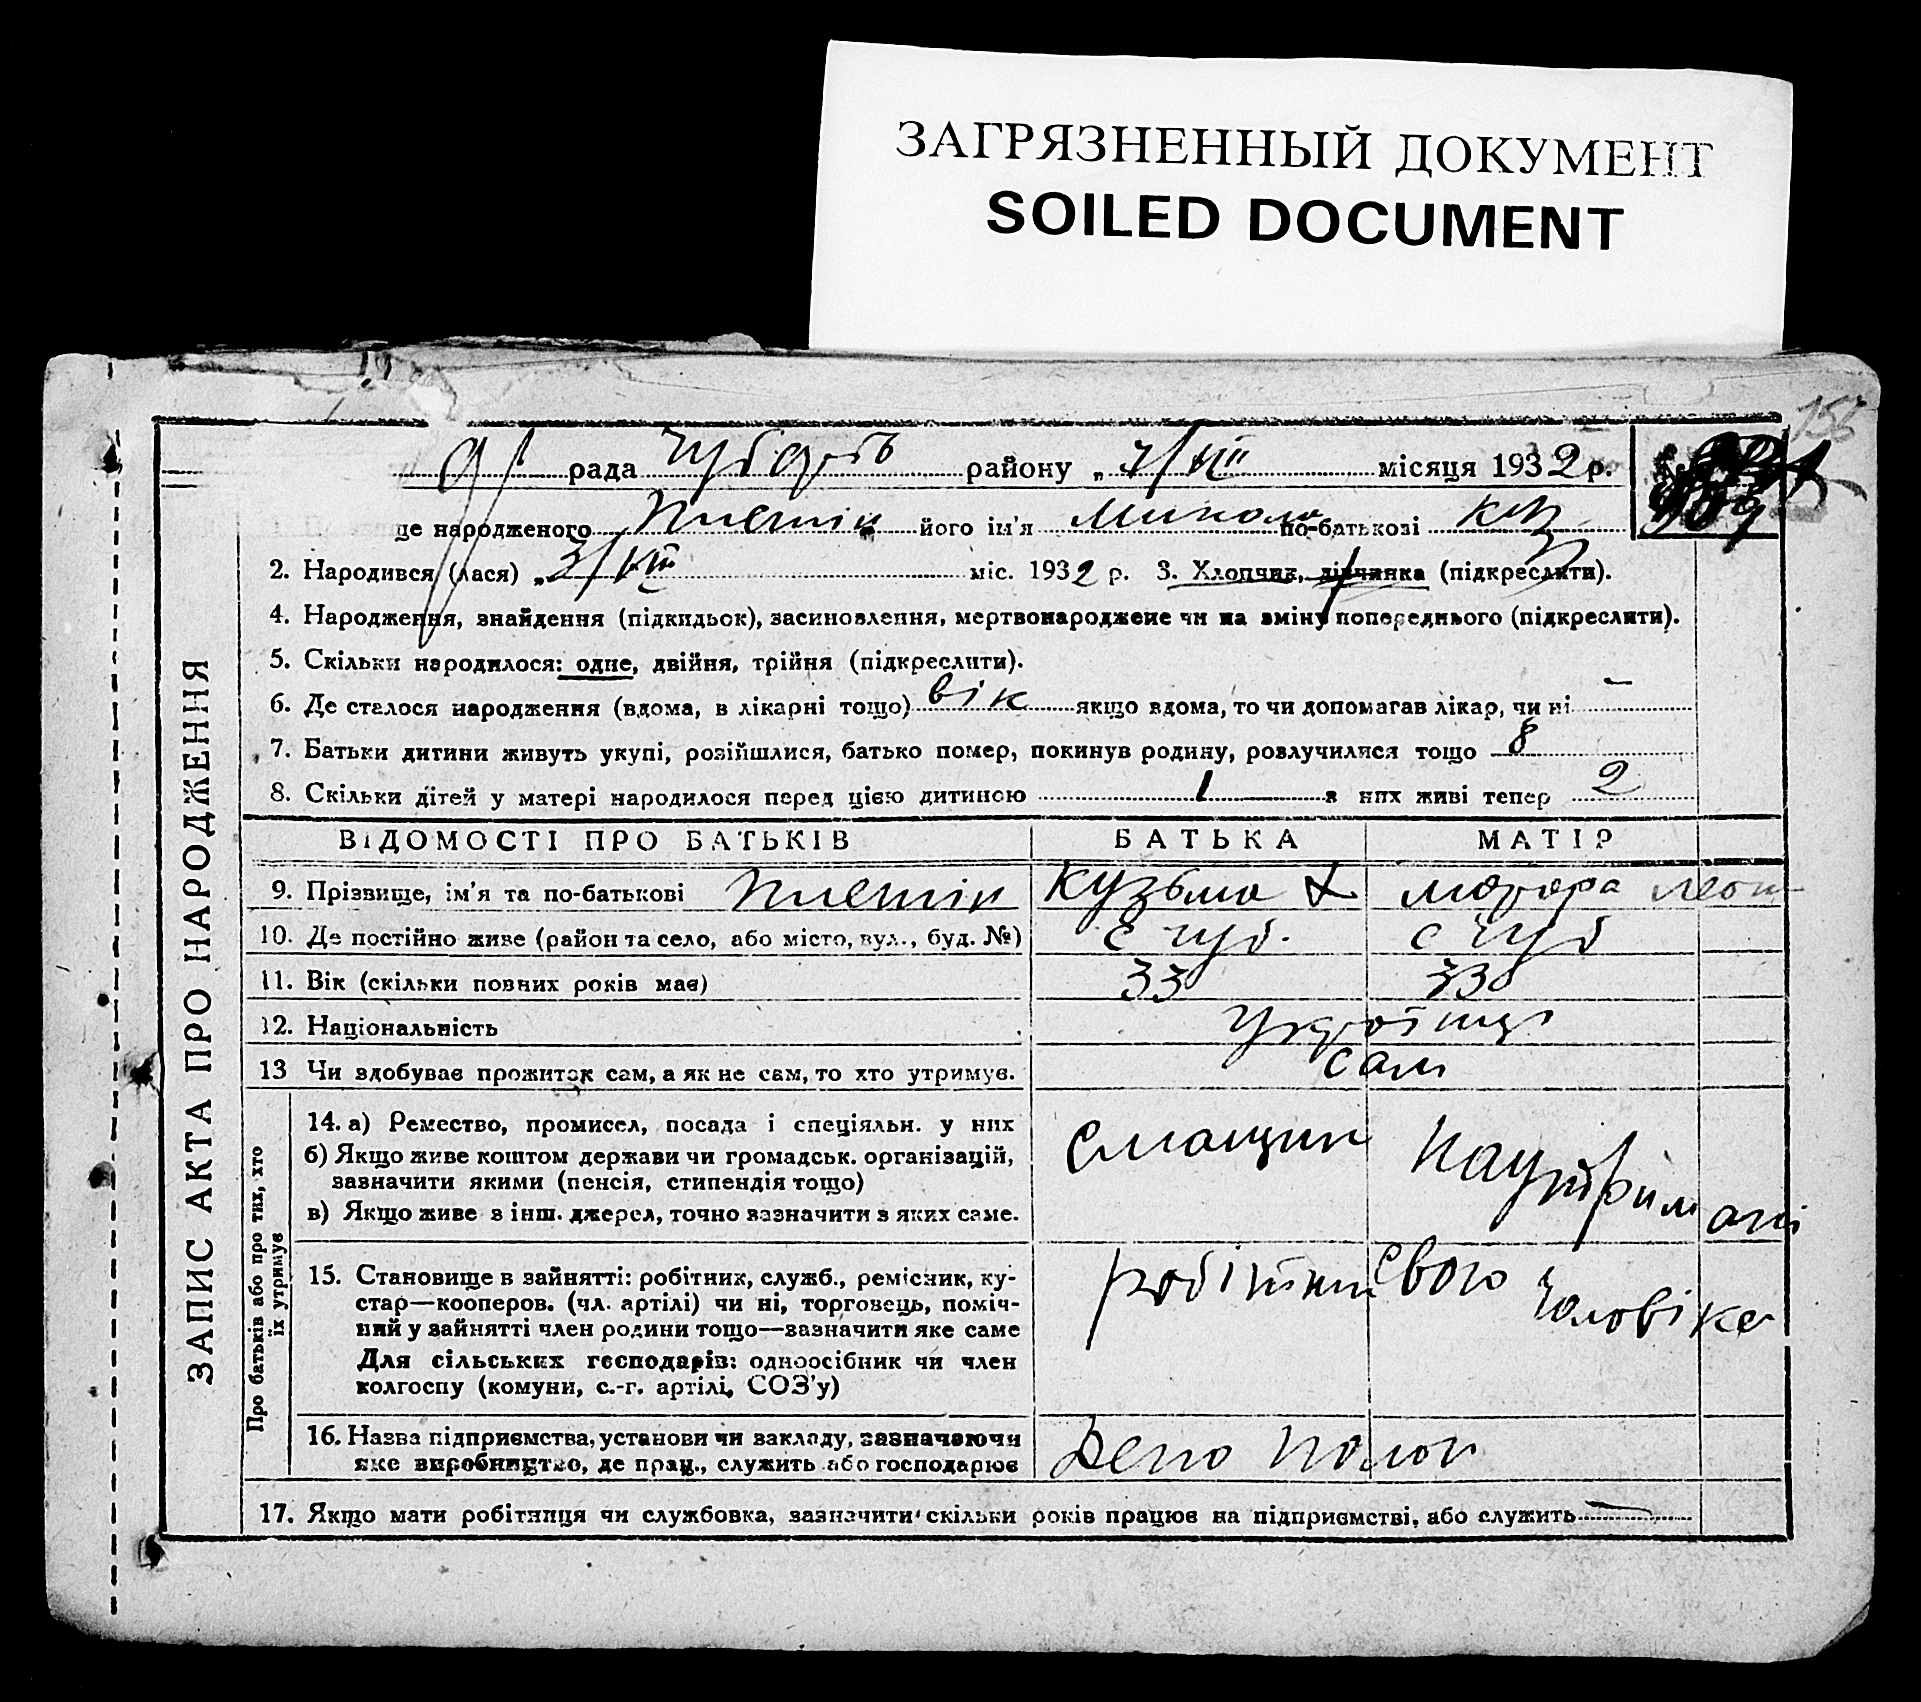 ЗАГРЯЗНЕННЫЙ ДОКУМЕНТ
SOILED DOCUMENT
156
рада районy „ 7/XII місяця 1932 р.
ще народженого його ім'я Микола по-батькові Куз
2. Народився (лася) „ 3/XII міс. 1932 р. 3. Хлопчик, дівчинка (підкреслити).
4. Народження, знайдення (підкидьок), засиновлення, мертвонароджене чи на зміну попереднього (підкреслити).
5. Скільки народилося: одне, двійня, трійня (підкреслити).
6. Де сталося народження (вдома, в лікарні тощо) якщо вдома, то чи допомагав лікар, чи ні —
7. Батьки дитини живуть укупі, розійшлися, батько помер, покинув родину, розлучилися тощо
8. Скільки дітей у матері народилося перед цією дитиною 1 з них живі тепер 2
ЗАПИС АКТА ПРО НАРОДЖЕННЯ
ВІДОМОСТІ ПРО БАТЬКІВ БАТЬКА МАТІР
9. Прізвище, ім'я та по-батькові Кузьма
10. Де постійно живе (район та село, або місто, вул., буд. №) с Чуб. с Чуб
11. Вік (скільки повних років має) 33 33
12. Національність Українці
13 Чи здобуває прожиток сам, а як не сам, то хто утримує. сам
Про батьків або про тих, хто їх утримує
14. а) Ремество, промисел, посада і спеціяльн. у них Смащик На утриманні
б) Якщо живе коштом держави чи громадськ. організацій,
зазначити якими (пенсія, стипендія тощо)
в) Якщо живе з інш. джерел, точно зазначити з яких саме.
15. Становище в зайнятті: робітник, служб., ремісник, ку- робітник свого чоловіка
стар—кооперов. (чл. артілі) чи ні, торговець, поміч-
ний у зайнятті член родини тощо—зазначити яке саме
Для сільських господарів: одноосібник чи член
колгоспу (комуни, с.-г. артілі, СОЗ'у)
16. Назва підприємства, установи чи закладу, зазначаючи Депо
яке виробництво, де прац., служить або господарює
17. Якщо мати робітниця чи службовка, зазначити скільки років працює на підприємстві, або служить —